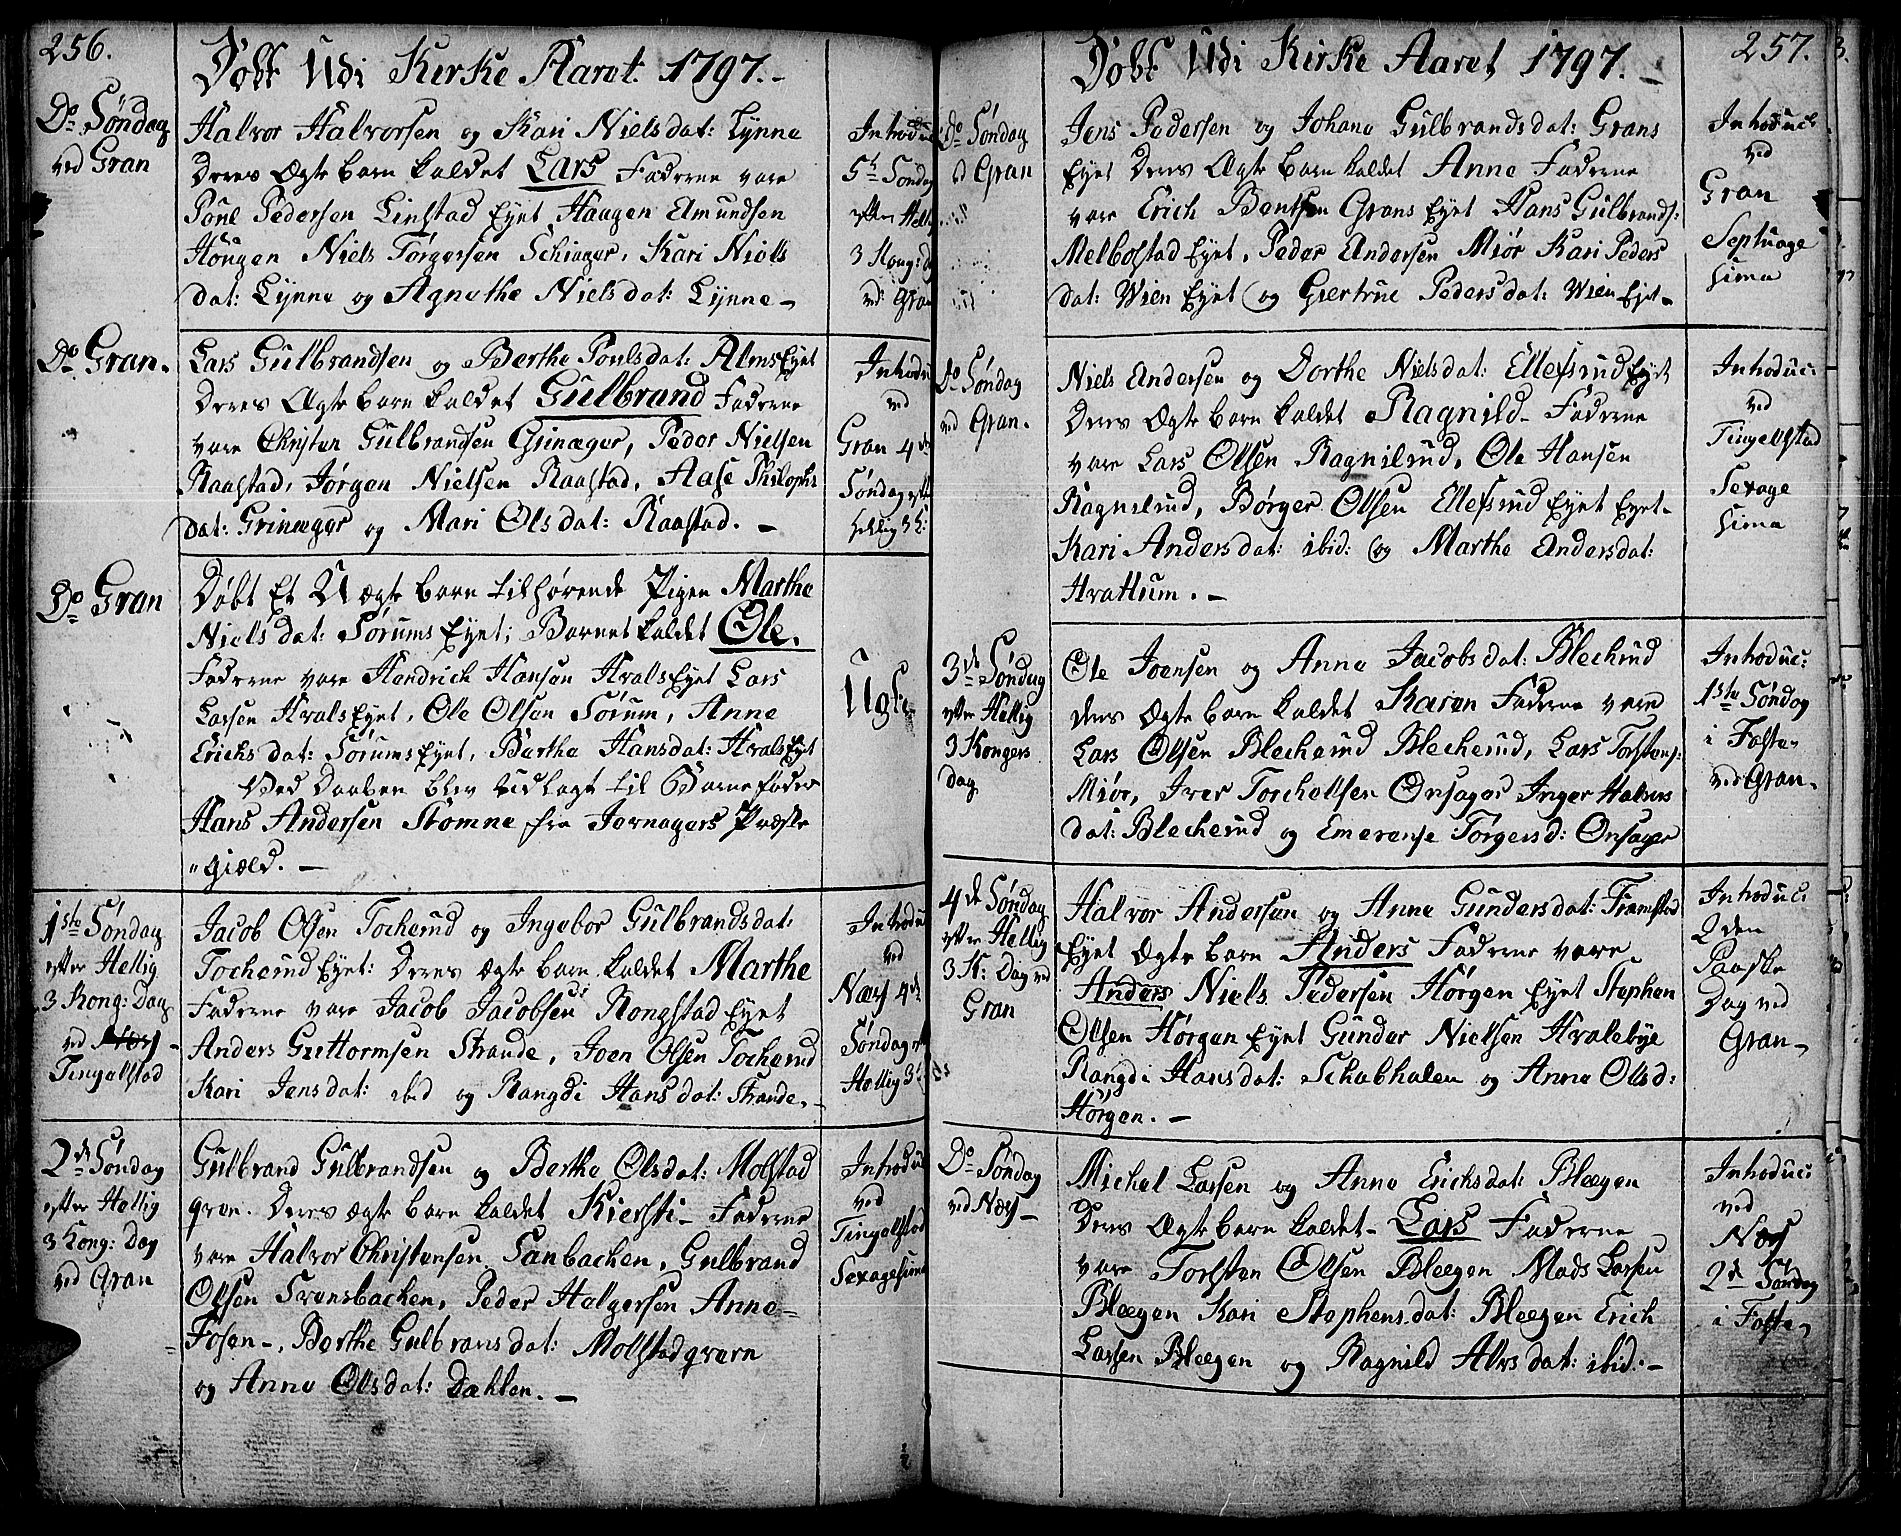 256.
Døbt Udi Kirke Aaret 1797.-
Do Søndag
ved Gran
Halvor Halvorsen og Kari Nielsdat: Lynne
Deres Ægte barn kaldet Lars Faderne vare
Poul Pedersen Linstad Eyet Haagen Amundsen
Hougen Niels Torgersen Schiager, Kari Niels
dat: Lynne og Agnethe Nielsdat: Lynne -
Introdu
5te Søndag
efter Hellig
3 Kong: d
ved Gran
Do Gran.
Lars Gulbrandsen og Berthe Poulsdat: AlmsEyet
Deres Ægte barn kaldet Gulbrand Faderne
vare Christen Gulbrandsen Grinæger, Peder Nielsen
Raastad, Jørgen Nielsen Raastad, Aase Philophs
dat: Grinæger og Mari Olsdat: Raastad. -
Introdu
ved
Gran 4de
Søndag eft
Hellig 3 K:
Do Gran
Døbt Et Uægte barn tilhørende Pigen Marthe
Nielsdat: SørumsEyet; Barnet kaldet Ole.
Faderne vare Hendrich Hansen HvalsEyet Lars
Larsen HvalsEyet, Ole Olsen Sørum, Anne
Erichsdat: SørumsEyet, Berthe Hansdat: HvalsEyet
Ved Daaben blev Udlagt til Barnefader
Hans Andersen Stomne fra Jevnagers Præste
"giæld. -
Ugf:
1ste Søndag
efter Hellig
3 Kong: Dag
ved Næs -
Tingelstad
Jacob Olsen Tocherud og Ingebor Gulbrandsdat:
TocherudEyet: Deres Ægte barn kaldet Marthe
Faderne vare Jacob Jacobsen Rongstad Eyet
Anders Guttormsen Strande, Joen Olsen Tocherud
Kari Jensdat: ibid og Rangdi Hansdat: Strande, -
Introdu
ved
Næs 4de
Søndag e
Hellig 3 K
2de Søndag
efter Hellig
3 Kong: Dag
ved Gran
Gulbrand Gulbrandsen og Berthe Olsdat: Molstad
qvern. Deres Ægte barn kaldet Kiersti - Faderne
vare Halvor Christensen Sanbachen, Gulbrand
Olsen Transbachen, Peder Halgersen Anne-
Fosen -, Berthe Gulbransdat: Mollstadqvern
og Anne Olsdat: Dæhlen. -
Introdu
ved
Tingelstad
Sexagesima
257.
Døbt Udi Kirke Aaret 1797. -
Do Søndag
d Gran
Jens Pedersen og Johane Gulbrandsdat: Grans
Eyet Deres Ægte barn kaldet Anne Faderne
vare Erich Bentsen Grans Eyet Hans Gulbrands:
Melbostad Eyet, Peder Andersen Miør Kari Peders
dat: Wien Eyet og Giertrue Pedersdat: Wien Eyet -
Introduc:
ved
Gran
Septuage
sima
Do Søndag
ved Gran.
Niels Andersen og Dorthe Nielsdat: EllefsrudEyet
Deres Ægte barn kaldet Ragnild - Faderne
vare Lars Olsen Ragnilrud, Ole Hansen
Ragnilrud, Børger Olsen Ellefsrud Eyet Eyet-
Kari Andersdat: ibid: og Marthe Andersdat:
Hvattum. -
Introduc:
ved
Tingelstad
Sexage
sima
3de Søndag
efter Hellig
3 Kongers
Dag
Ole Joensen og Anne Jacobsdat: Blecherud
deres Ægte barn kaldet Karen Faderne vare
Lars Olsen Blecherud Blecherud, Lars Torstens:
Miør, Iver Torchelsen Onsager Inger Halvors
dat: Blecherud og Emerense Torgersd: Onsager
Introduc:
1ste Søndag
i Faste
ved Gran.
4de Søndag
efter Hellig
3 K: Dag ved
Gran
Halvor Andersen og Anne Gundersdat: Framstad
Eyet Ægte barn Anders Faderne vare
Anders Niels Pedersen Hørgen Eyet Stephen
Olsen Hørgen Eyet Gunder Nielsen Hvalebye
Rangdi Hansdat: Schabhalen og Anne Olsd:
Hørgen. -
Introduc:
2den
Paaske
Dag ved
Gran -
Do Søndag
ved Næs -
Michel Larsen og Anne Erichsdat: Bleegen
Deres Ægte barn kaldet - Lars Faderne
vare Torsten Olsen Bleegen Mads Larsen
Bleegen Kari Stephensdat: Bleegen Erich
Larsen Bleegen og Ragnild Alvsdat: ibid: -
Introduc:
ved
Næs
2de Søndag
i Faste,